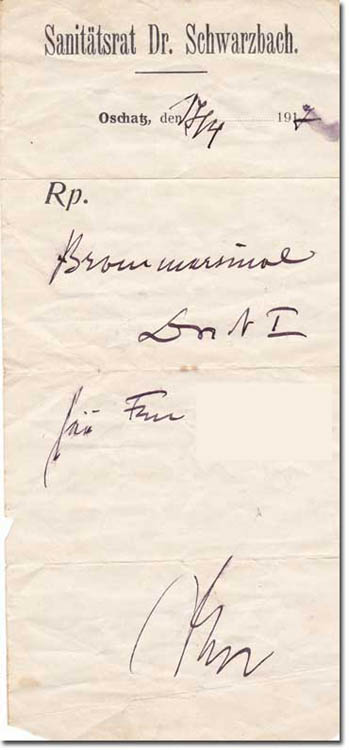 Sanitätsrat Dr. Schwarzbach.
Oschatz, den 17/4 1917
Rp.
Brommarsinal
D N I
für Frau